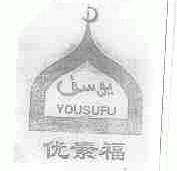 يوسف
YOUSUFU
优素福